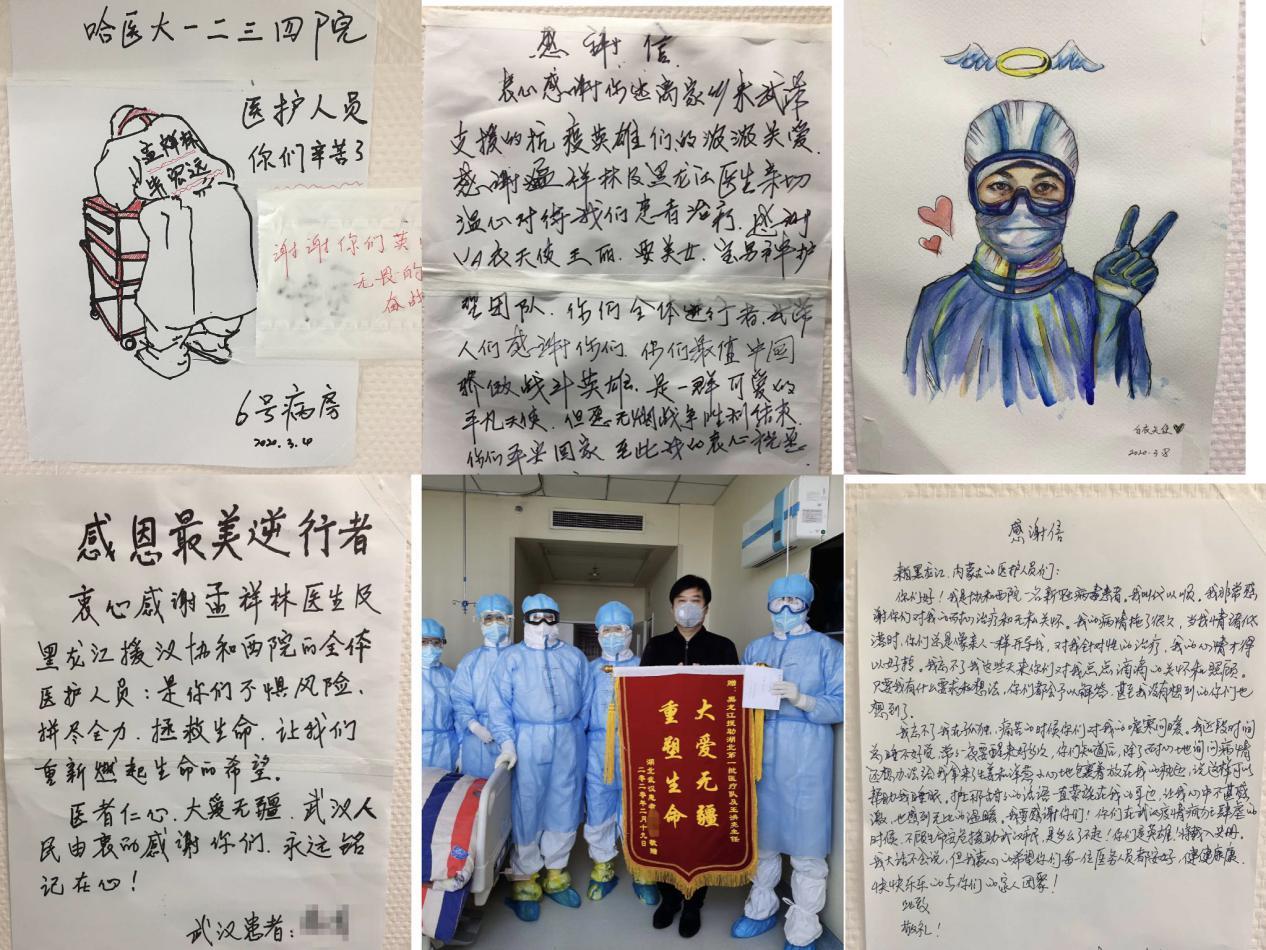 哈医大一二三四院
医护人员
你们辛苦了
孟祥林
毕宏远
谢谢你们英
无畏的
奋战
6号病房
2020.3.4
感谢信
衷心感谢你们离家乡来武汉
支援的抗疫英雄们的滚滚关爱.
感谢孟祥林及黑龙江医生亲切
温心对待我们患者治疗.感谢
白衣天使王丽.
理团队.你们全体逆行者.武汉
人们感谢你们.你们最值中国
骄傲战斗英雄.是一群可爱的
平凡天使.但愿无烟战争胜利结束.
你们平安回家 至此我的衷心祝愿
白衣天使
2020.3.8
感恩最美逆行者
衷心感谢孟祥林医生及
黑龙江援汉协和西院的全体
医护人员:是你们不惧风险.
拼尽全力.拯救生命.让我们
重新燃起生命的希望。
医者仁心.大爱无疆.武汉人
民由衷的感谢你们.永远铭
记在心!
武汉患者:
赠:黑龙江援助湖北第一批医疗队及王洪亮主任
大爱无疆
重塑生命
湖北武汉患者
敬赠
二〇二〇年二月十九日
感谢信
黑龙江、内蒙古的医护人员们:
你们好!我是协和西院一名新冠病毒患者。我非常感
谢你们对我的治疗和无私关怀。我的病情拖了很久,当我情绪低
落时,你们总是像亲人一样开导我,对我针对性的治疗,我的心情才得
以好转,我忘不了我这些天来你们对我点点滴滴的关怀和照顾。
只要我有什么要求和想法,你们都会予以解答.甚至我没有想到的你们也
想到了。
我忘不了我在孤独、痛苦的时候你们对我的嘘寒问暖。我这段时间
你们知道后,除了耐心地询问病情
还想办法给我拿来了生姜和洋葱
帮助我睡眠。
激,也感到无比的温暖。我要感谢你们!你们在武汉疫情病力肆虐的
时候,不顾生命安危援助武汉市民,是多么了不起!你们是英雄!将载入史册。
我大话不会说,但我衷心的希望你们每一位医务人员都安好,健健康康、
快快乐乐的与你们的家人团聚!
此致
敬礼!